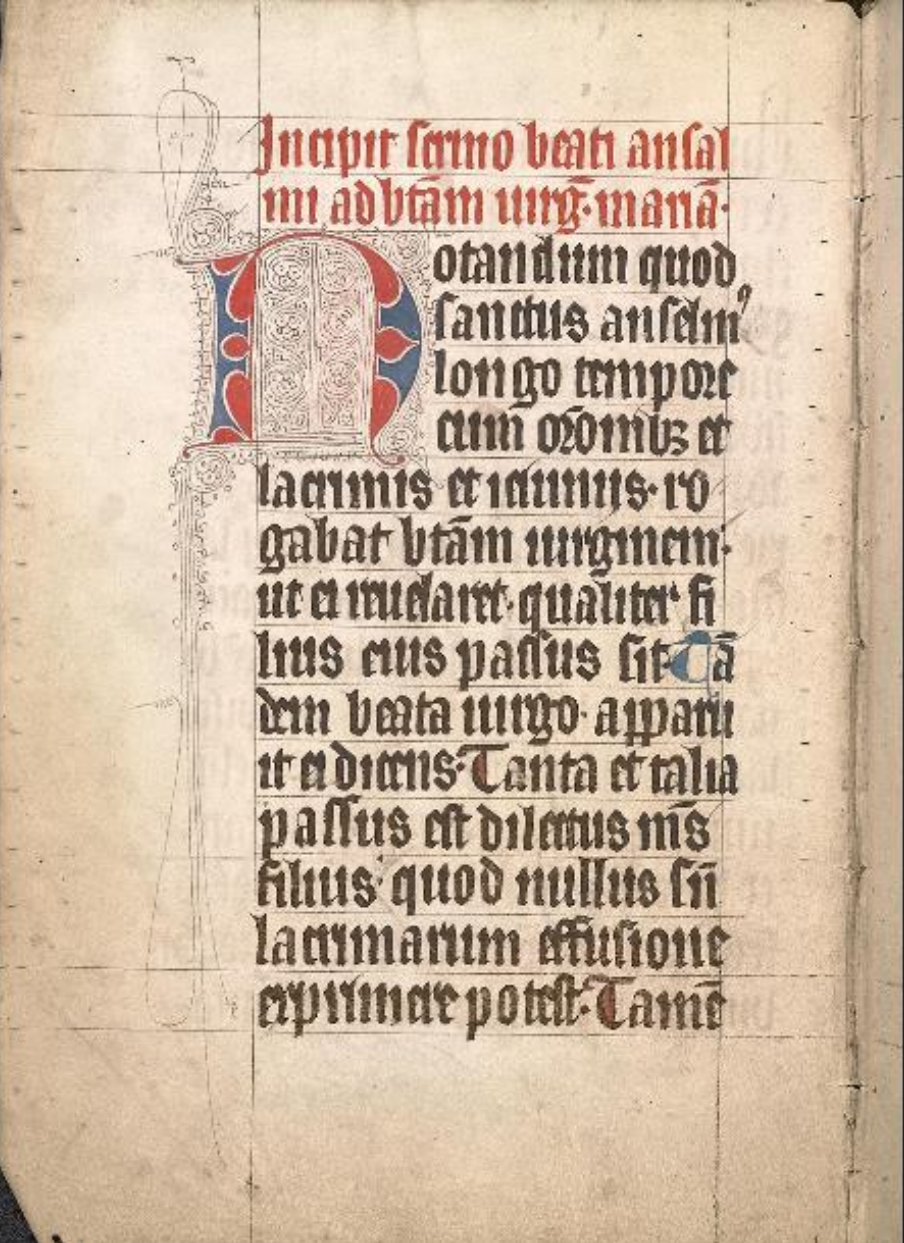 Incipit sermo beati ansal
mi ad btām uirḡ· mariā·
Notandum quod
sanctus anselmꝰ
longo tempore
cum̄ or̄onibꝫ et
lacrimis et ieiuniis· ro
gabat btām uirginem·
ut ei reuelaret· qualiter fi
lius eius passus sit· Tā
dem beata uirgo· apparu
it ei dicens· Tanta et talia
passus est dilectus mi̅s
filius· quod nullus sn̄
lacrimarum effusione
exprimere potest· Tamē